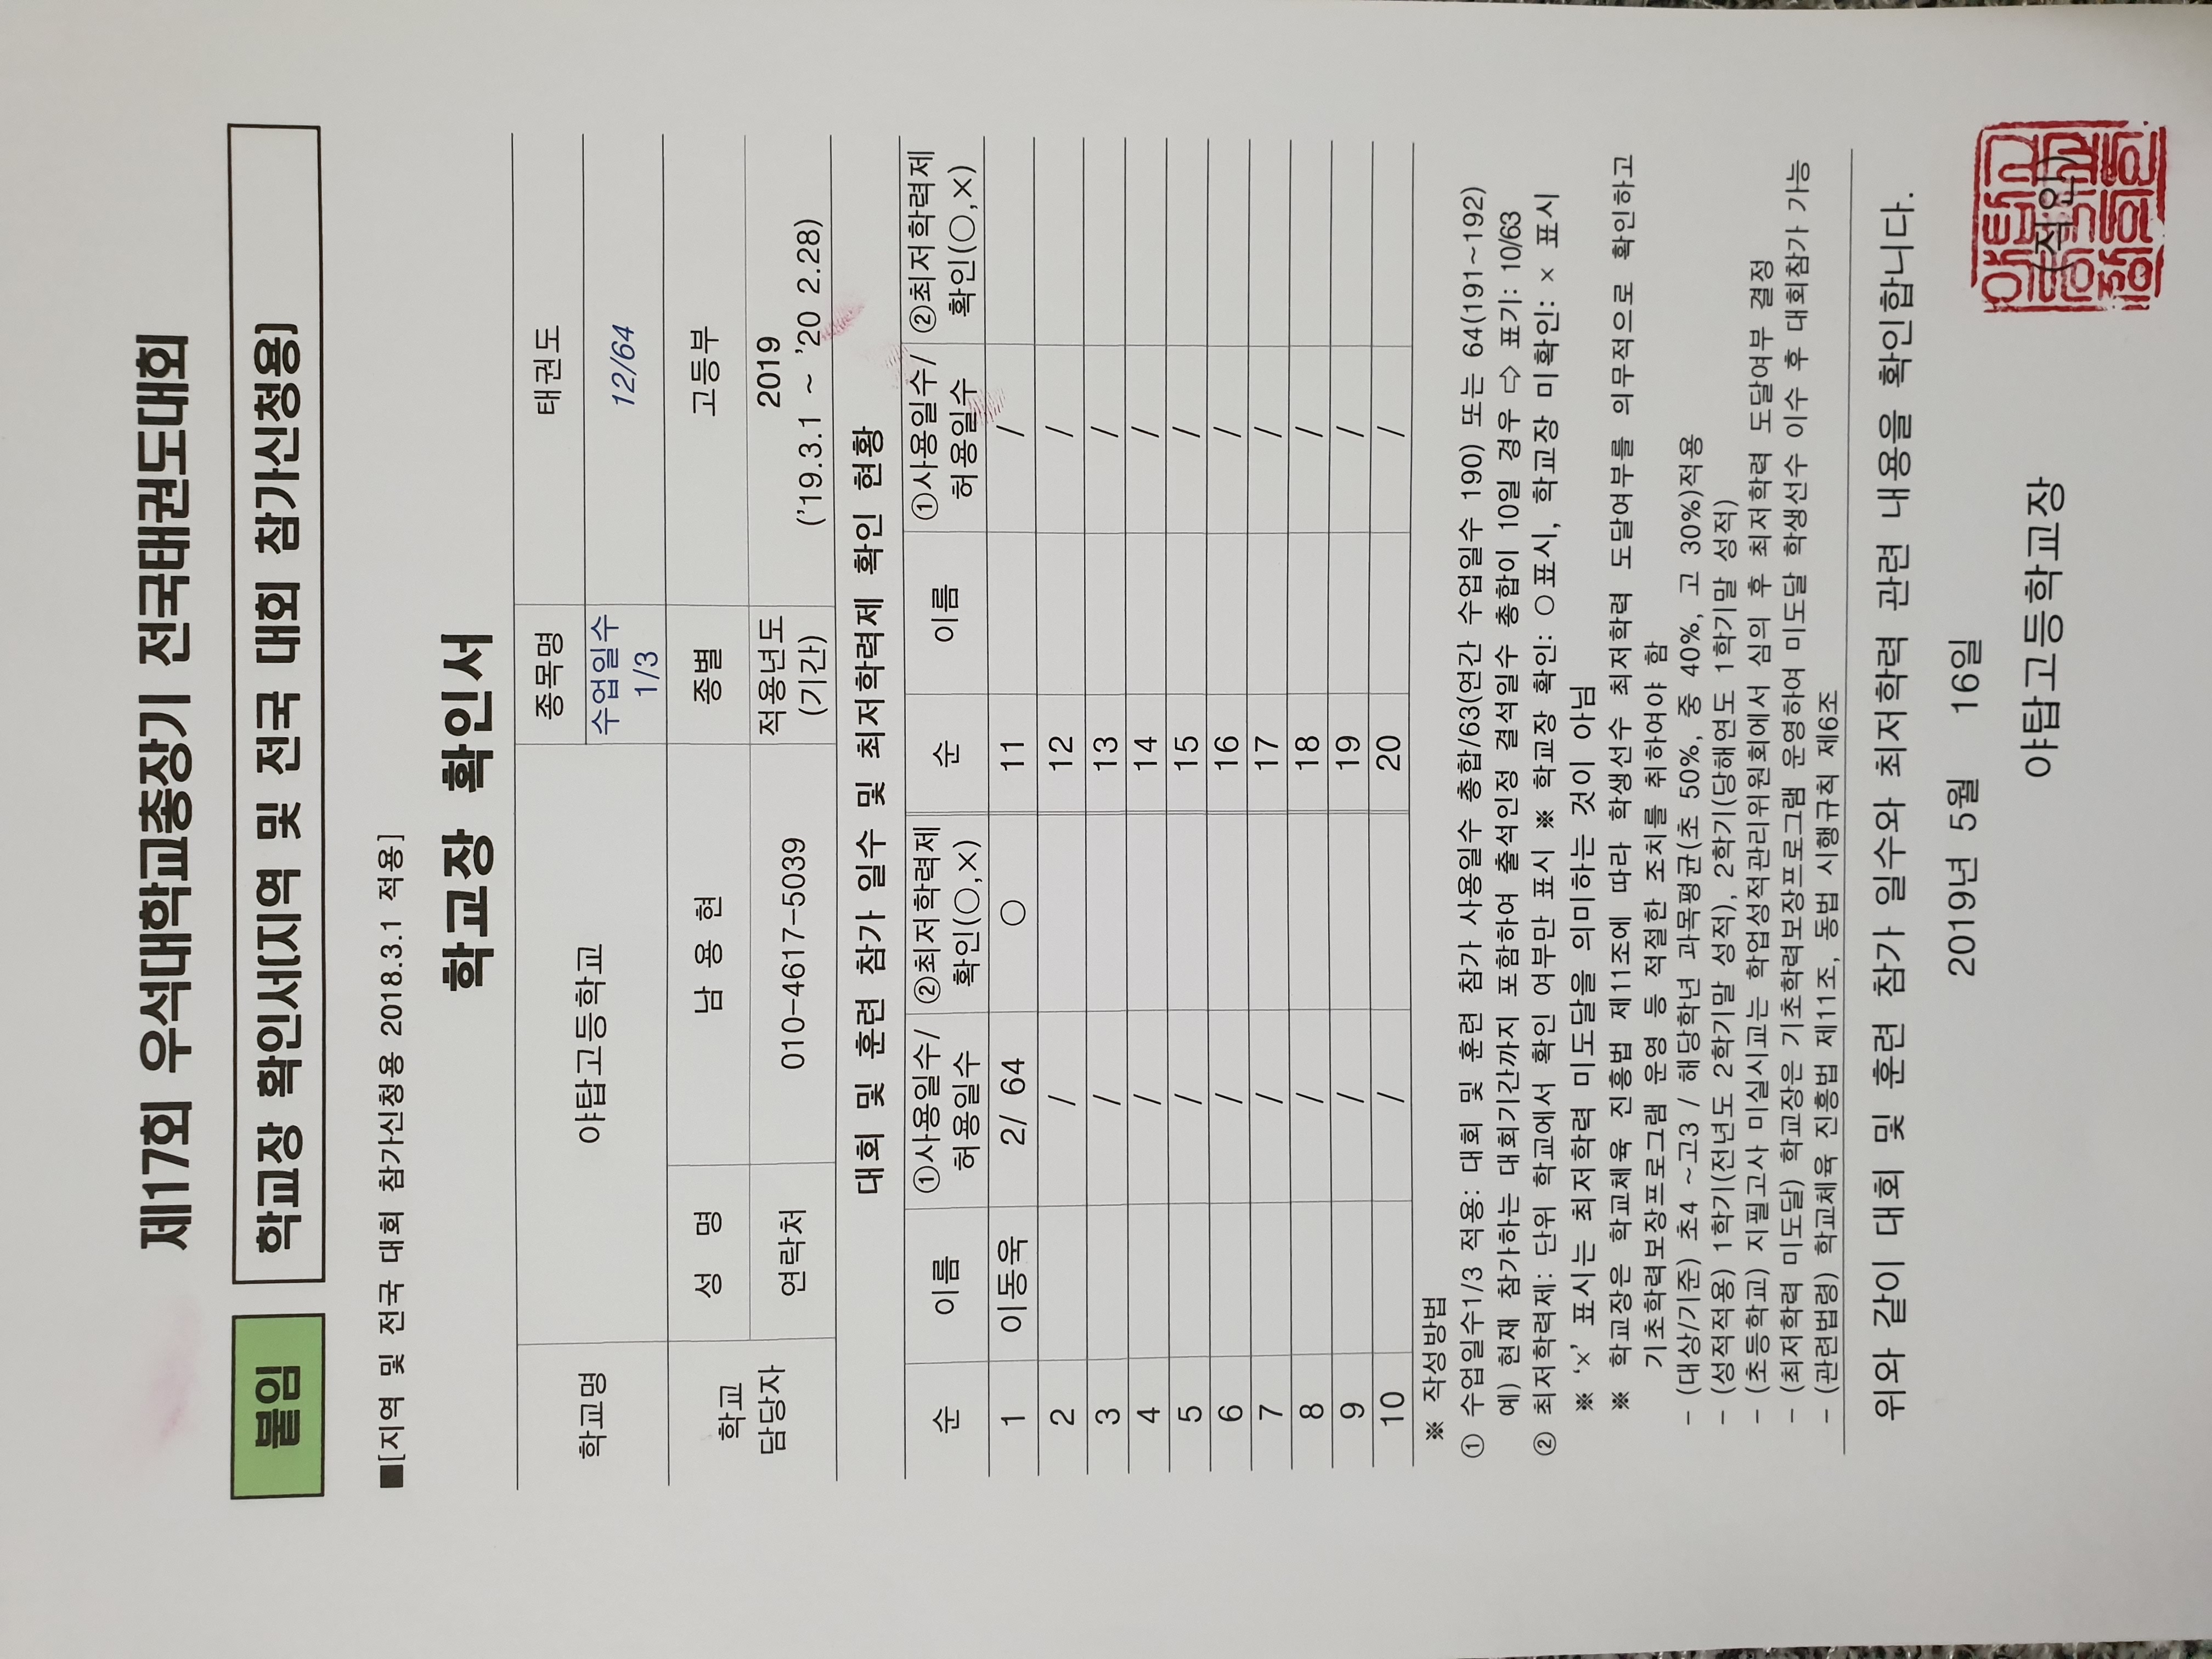 제17회 우석대학교총장기 전국태권도대회
붙임 학교장 확인서(지역 및 전국 대회 참가신청용)
■[지역 및 전국 대회 참가신청용 2018.3.1 적용]
학교장 확인서
학교명 야탑고등학교 종목명 태권도
수업일수 1/3 12/64
학교 담당자 성 명 남 용 현 종별 고등부
연락처 010-4617-5039 적용년도 (기간) 2019 ('19.3.1 ~ '20 2.28)
대회 및 훈련 참가 일수 및 최저학력제 확인 현황
순 이름 ①사용일수/허용일수 ②최저학력제 확인(○,×) 순 이름 ①사용일수/허용일수 ②최저학력제 확인(○,×)
1 이동욱 2/ 64 ○ 11 /
2 / 12 /
3 / 13 /
4 / 14 /
5 / 15 /
6 / 16 /
7 / 17 /
8 / 18 /
9 / 19 /
10 / 20 /
※ 작성방법
① 수업일수1/3 적용: 대회 및 훈련 참가 사용일수 총합/63(연간 수업일수 190) 또는 64(191~192)
예) 현재 참가하는 대회기간까지 포함하여 출석인정 결석일수 총합이 10일 경우 ⇨ 표기: 10/63
② 최저학력제: 단위 학교에서 확인 여부만 표시 ※ 학교장 확인: ○표시, 학교장 미확인: × 표시
※ '×' 표시는 최저학력 미도달을 의미하는 것이 아님
※ 학교장은 학교체육 진흥법 제11조에 따라 학생선수 최저학력 도달여부를 의무적으로 확인하고
기초학력보장프로그램 운영 등 적절한 조치를 취하여야 함
- (대상/기준) 초4 ~고3 / 해당학년 과목평균(초 50%, 중 40%, 고 30%)적용
- (성적적용) 1학기(전년도 2학기말 성적), 2학기(당해연도 1학기말 성적)
- (초등학교) 지필고사 미실시교는 학업성적관리위원회에서 심의 후 최저학력 도달여부 결정
- (최저학력 미도달) 학교장은 기초학력보장프로그램 운영하여 미도달 학생선수 이수 후 대회참가 가능
- (관련법령) 학교체육 진흥법 제11조, 동법 시행규칙 제6조
위와 같이 대회 및 훈련 참가 일수와 최저학력 관련 내용을 확인합니다.
2019년 5월 16일
야탑고등학교장 (직인)